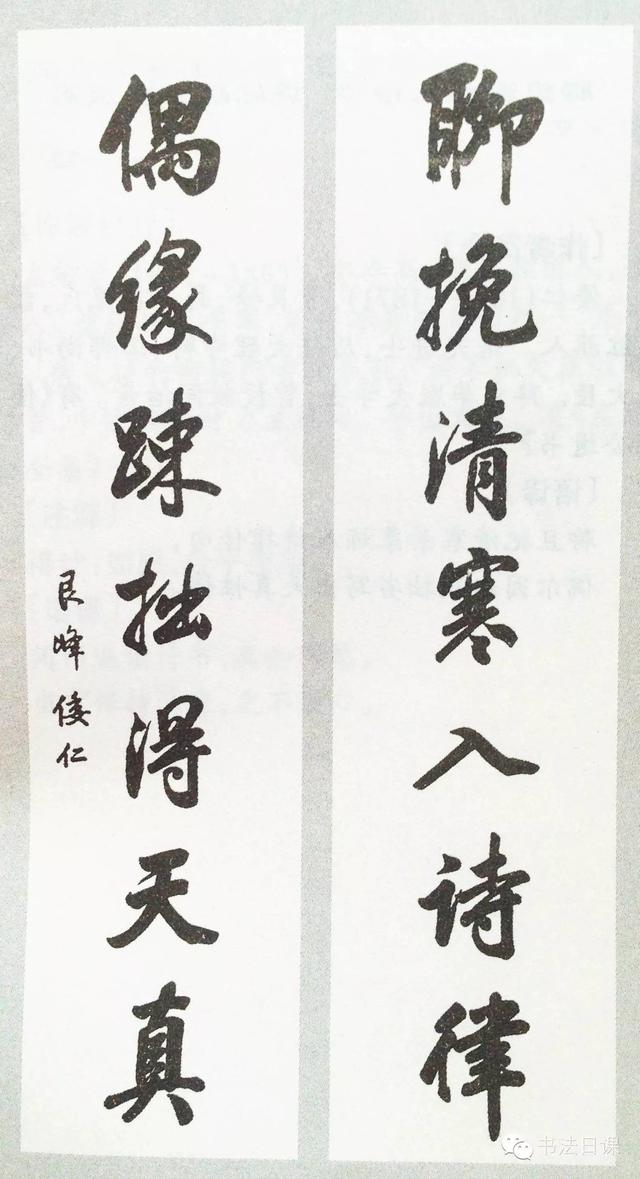 聊挽清寒入诗律
偶缘踈拙得天真
艮峰倭仁
书法日课